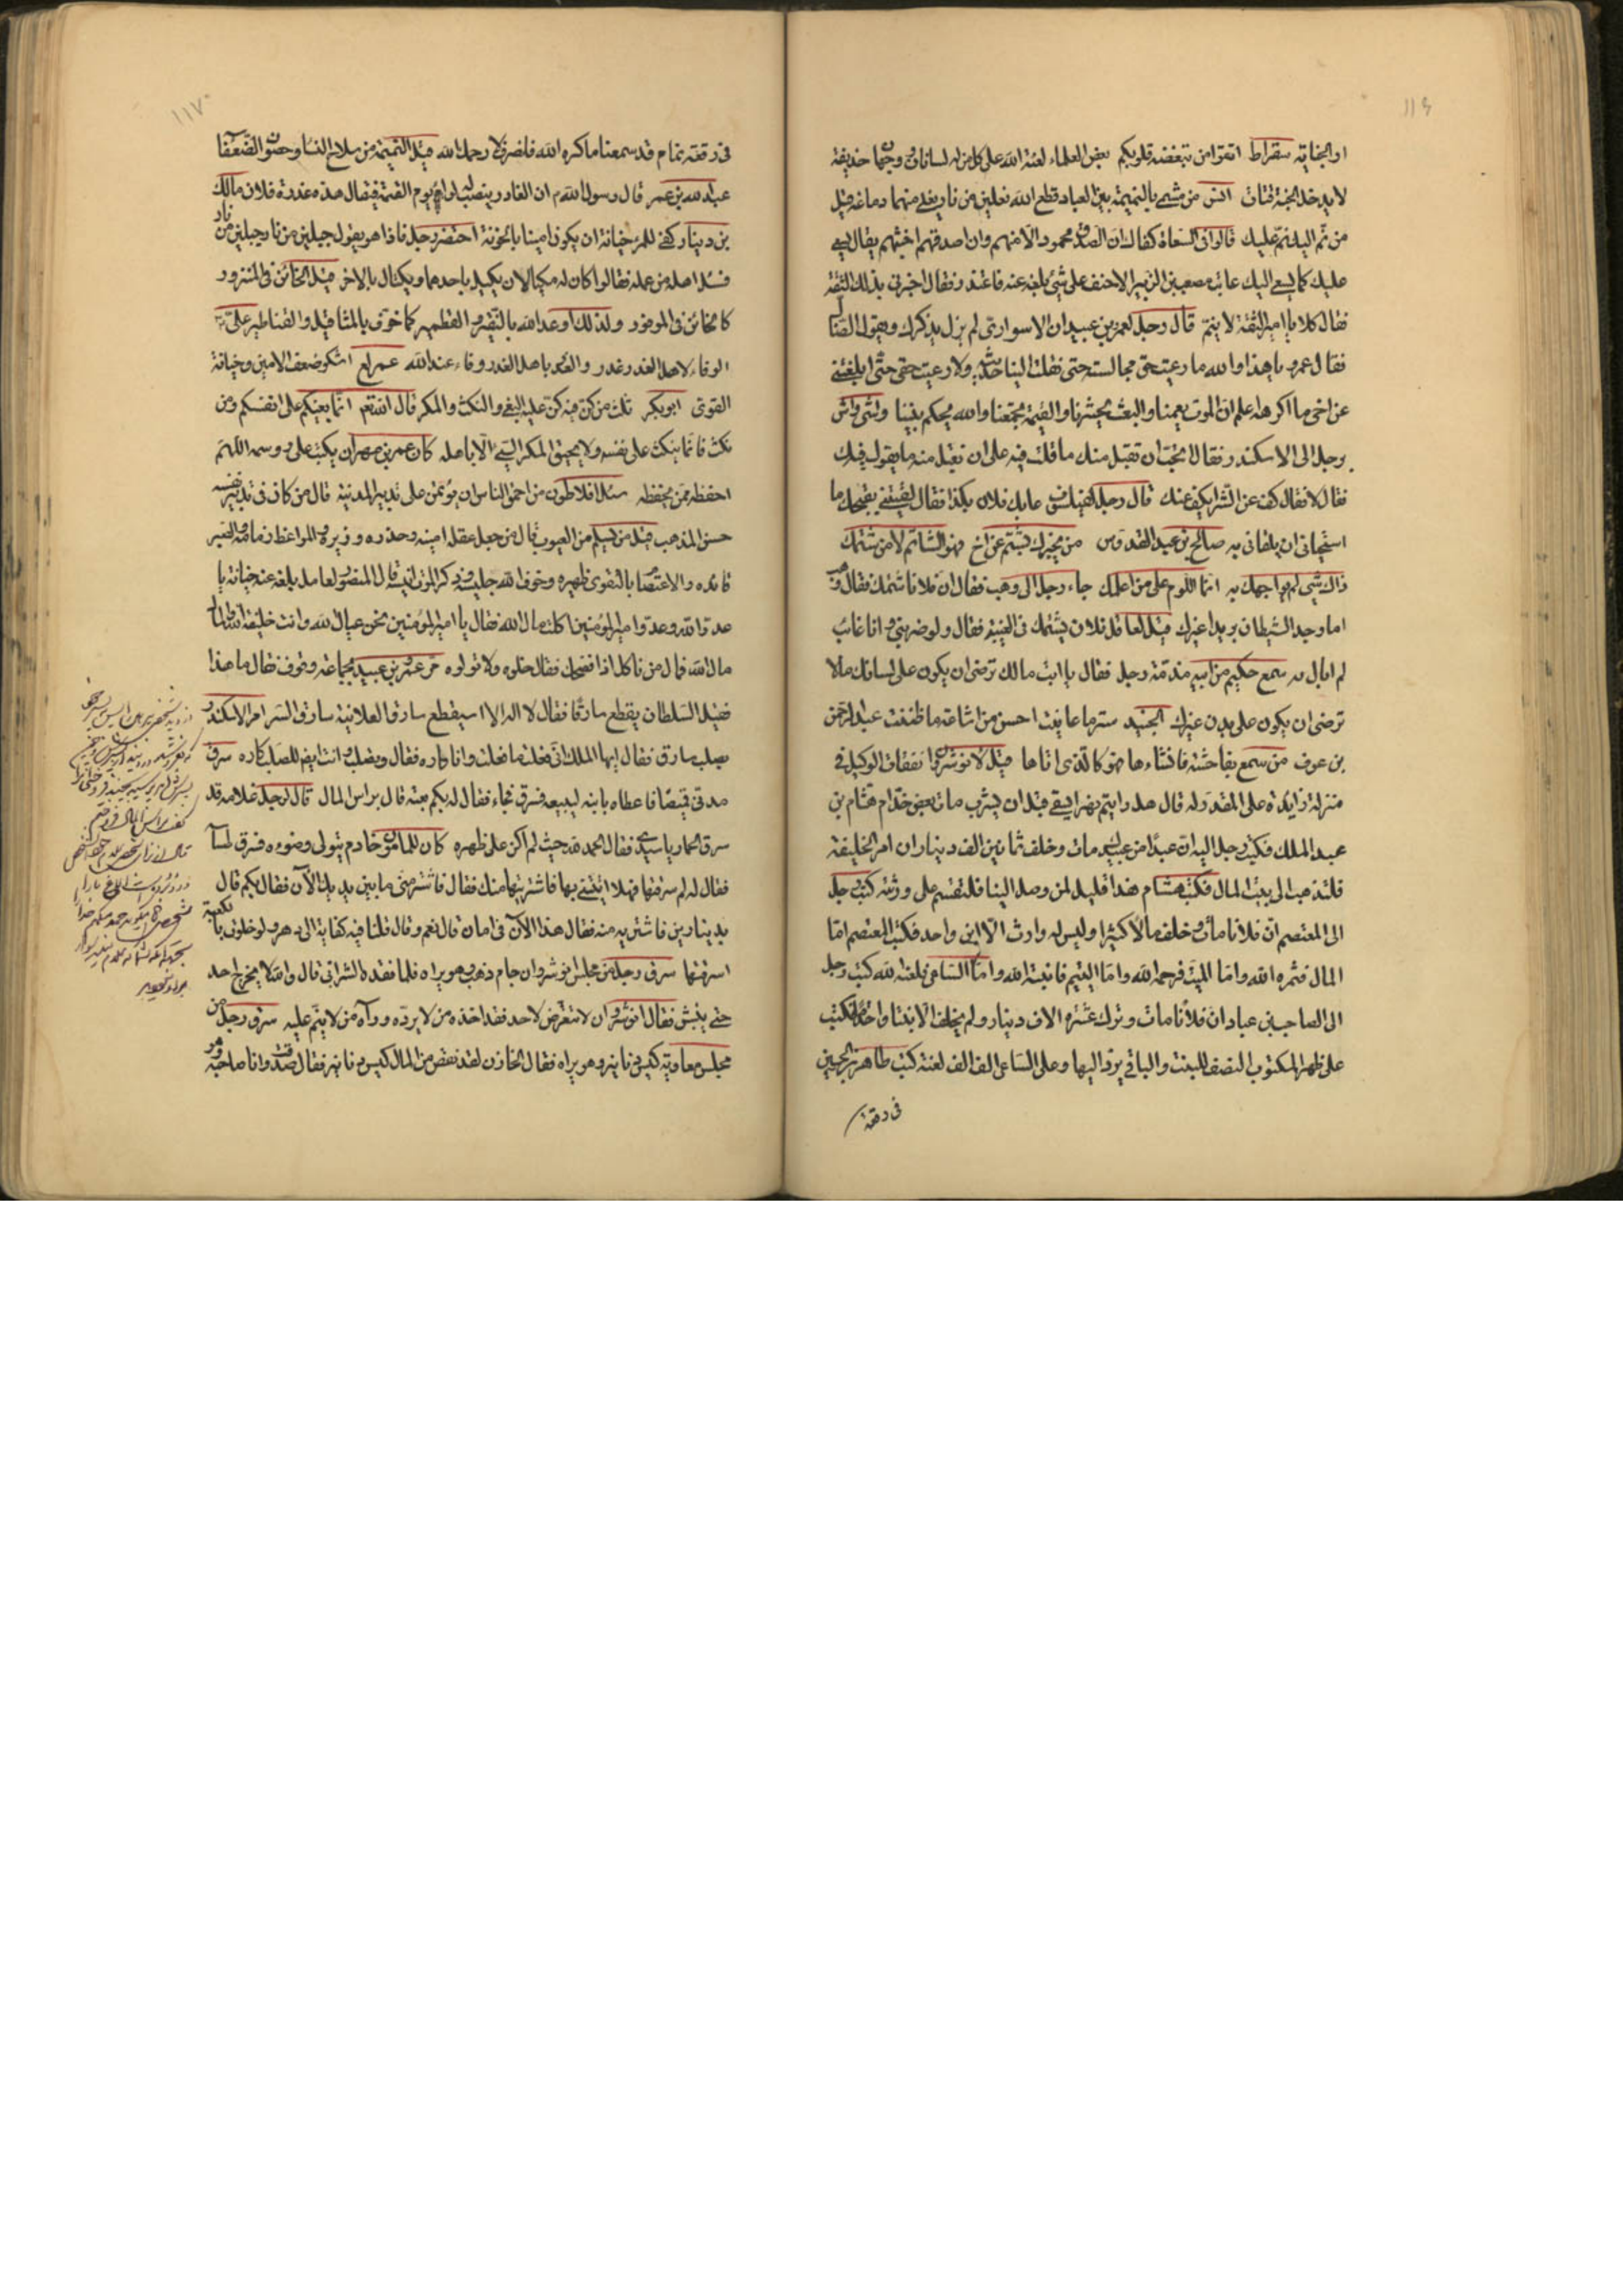 ١١٦
او الجفاة سقراط اتقوا من تبغضه قلوبكم بعض العلماء لعنة الله على كل من له لسانان ووجهان حذيفة
لا يدخل الجنة قتات انس من مشى بالنميمة بين العباد قطع الله نعلين من نار يغلى منهما دماغه قيل
من نم اليك نم عليك قالوا فى السعاة كفاك ان الصدق محمود الا منهم وان اصدقهم اخبثهم يقال يسعى
عليك كما يسعى اليك عاتب مصعب بن الزبير الاحنف على شئ بلغه عنه فاعتذر فقال اخبرنى بذلك الثقة
فقال كلا يا امير الثقة لا ينم قال رجل لعمرو بن عبيد ان الاسوارى لم يزل يذكرك ويقول الضال
فقال عمرو يا هذا والله ما رعيت حق مجالسته حتى نقلت الينا حديثه ولا رعيت حقى حتى ابلغتنى
عن اخى ما اكره اعلم ان الموت يعمنا والبعث يحشرنا والقيمة تجمعنا والله يحكم بيننا وشى واش
برجل الى الاسكندر فقال اتحب ان نقبل منك ما قلت فيه على ان نقبل منه ما يقول فيك
فقال لا فقال كف عن الشر يكف عنك قال رجل لفيلسوف عابك فلان بكذا فقال لقيتنى بقبحك ما
استحيانى ان يلقانى به صالح بن عبد القدوس من يخبرك بشتم عن اخ فهو الشاتم لا من شتمك
ذاك شئ لم يواجهك به انما اللوم على من اعلمك جاء رجل الى وهب فقال ان فلانا شتمك فقال وهب
اما وجد الشيطان بريدا غيرك قيل لعاقل فلان يشتمك فى الغيبة فقال ولو ضربنى وانا غائب
لم ابال به سمع حكيم من ابيه مذمة رجل فقال يا ابت مالك ترضى ان يكون على لسانك ما لا
ترضى ان يكون على بدن غيرك الجنيد ستر ما عاينت احسن من اشاعة ما ظننت عبد الرحمن
بن عوف من سمع بفاحشة فافشاءها فهو كالذى اتاها قيل لانوشروان نفقات الوكيل فى
منزله زايدة على المقدوله قال هل رايتم نهرا يسقى قبل ان يشرب مات بعض خدام هشام بن
عبد الملك فكتب رجل اليه ان عبدا من عبيدك مات وخلف ثمانين الف دينار ان امر الخليفة
فلتذهب الى بيت المال فكتب هشام هذا قليل لمن وصل الينا فلتقسم على ورثته كتب رجل
الى المعتصم ان فلانا مات وخلف مالا كثيرا وليس له وارث الا ابن واحد فكتب المعتصم اما
المال فثمره الله واما الميت فرحمه الله واما اليتيم فانبته الله واما الساعى فلعنه الله كتب رجل
الى الصاحب بن عباد ان فلانا مات وترك عشرة الاف دينار ولم يخلف الا بنتا واحدة فكتب
على ظهر المكتوب النصف للبنت والباقى يرد اليها وعلى الساعى الف الف لعنة كتب طاهر بن الحسين
فى رقعة
١١٧
فى رقعة تمام قد سمعنا ما كره الله فانصرف لا رحمك الله قيل النميمة من سلاح النساء وحصون الضعفاء
عبد الله بن عمر قال رسول الله م ان الغادر ينصب له لواء يوم القيمة فيقال هذه غدرة فلان مالك
بن دينار كفى للمرء خيانة ان يكون امينا بالخونة احتضر رجل فاذا هو يقول جبلين من نار جبلين من نار
فسئل اهله من عمله فقالوا كان له مكيالان يكيل باحدهما ويكتال بالاخر قيل الخائن فى المنزور
كالخائن فى الموفور ولذلك اوعد الله بالنقير والقطمير كما خوف بالمثاقيل والقناطير على
الوفاء لاهل الغدر غدر والغدر باهل الغدر وفاء عند الله عمر لع اشكو ضعف الامين وخيانة
القوى ابو بكر ثلث من كن فيه كن عليه البغى والنكث والمكر قال الله تعم انما بغيكم على انفسكم ومن
نكث فانما ينكث على نفسه ولا يحيق المكر السيئ الا باهله كان عمر بن مهران يكتب على روسمه اللهم
احفظه ممن يحفظه سئل افلاطون من احق الناس ان يؤتمن على تدبير المدينة قال من كان فى تدبير نفسه
حسن المذهب قيل من يسلم من العيوب قال من جعل عقله امينه وحذره وزيره والمواعظ زمامه والصبر
قائده والاعتصام بالتقوى ظهيره وخوف الله جليسه وذكر الموت انيسه قال المنصور لعامل بلغه عنه خيانة يا
عدو الله وعدو امير المؤمنين اكلت مال الله فقال يا امير المؤمنين نحن عيال الله وانت خليفة الله والمال
مال الله فمال من ناكل اذا فضحك فقال خلوه ولا تولوه مر عمرو بن عبيد بجماعة وقوف فقال ما هذا
فقيل السلطان يقطع سارقا فقال لا اله الا الله سيقطع سارق العلانية سارق السر امر الاسكندر
بصلب سارق فقال ايها الملك انى فعلت ما فعلت وانا كاره فقال وتصلب وانت ايضا للصلب كاره سرق
مدنى قميصا فاعطاه بابنه ليبيعه فسرق فجاء فقال له بكم بعته قال براس المال قال لرجل غلامه قد
سرق الحمار يا سيدى فقال الحمد لله حيث لم اكن على ظهره كان للمامون خادم يتولى وضوءه فسرق طساسا
فقال له لم سرقتها فهلا اتيتنى بها فاشتريتها منك فقال فاشتر منى ما بين يديك الآن فقال بكم قال
بدينارين فاشتريه منه فقال هذا الآن فى امان قال نعم وقال فلنا فيه كفاية الى دهر
اسرقتها سرق رجل من مجلس انوشروان جام ذهب وهو يراه فلما فقده الشرابى قال والله لا يخرج احد
حتى يفتش فقال انوشروان لا تتعرض لاحد فقد اخذه من لا يرده ورآه من لا ينم عليه سرق رجل من
مجلس معاوية كيس دنانير وهو يراه فقال الخازن لقد نقص من المال كيس دنانير فقال صدقت وانا صاحبه